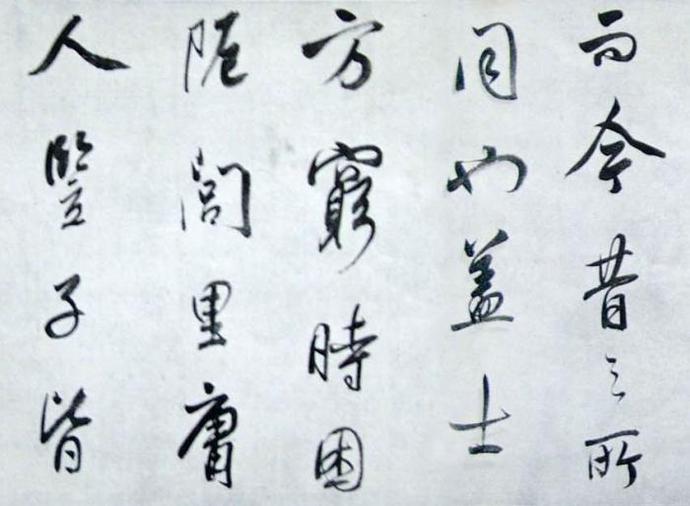 而今昔之所
同也盖士
方窮時困
阨閭里庸
人豎子皆